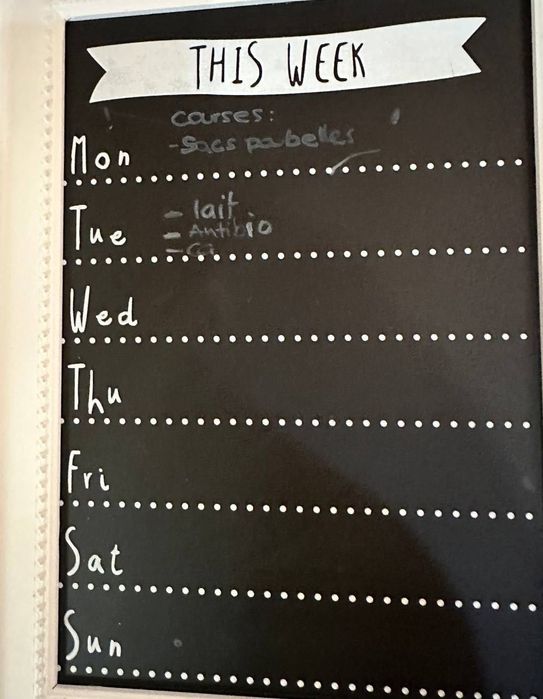 THIS WEEK
Courses:
-Sacs poubelles
Mon
- lait
Tue
- Antibio
- ca
Wed
Thu
Fri
Sat
Sun